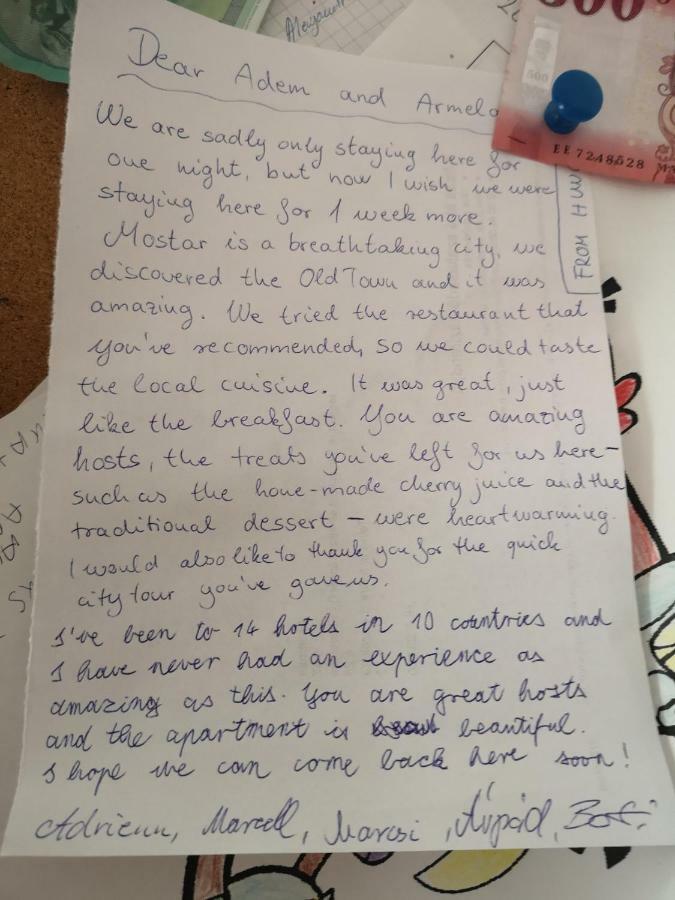 Dear Adem and Armela
We are sadly only staying here for
one night, but now I wish we were
staying here for 1 week more.
Mostar is a breathtaking city, we
discovered the Old Town and it was
amazing. We tried the restaurant that
you've recommended, so we could taste
the local cuisine. It was great, just
like the breakfast. You are amazing
hosts, the treats you've left for us here-
such as the home-made cherry juice and the
traditional dessert – were heartwarming.
I would also like to thank you for the quick
city tour you've gave us.
I've been to 14 hotels in 10 countries and
I have never had an experience as
amazing as this. You are great hosts
and the apartment is beautiful.
I hope we can come back here soon!
Adrienn, Marcell, Marcsi, Árpád,
FROM HUN
500
EE7248528